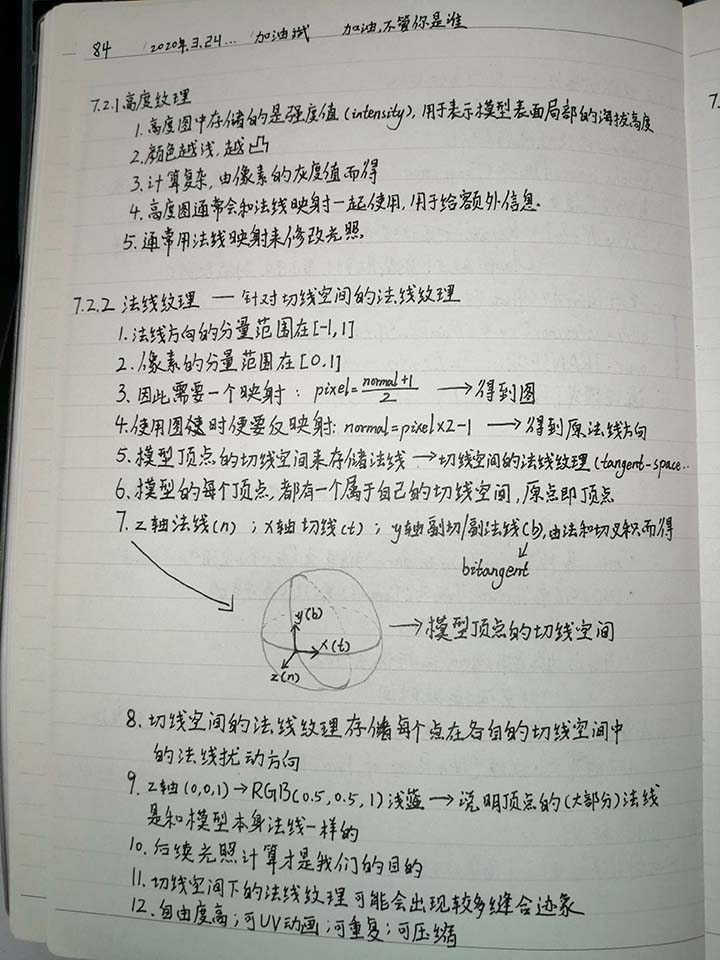 84 2020年.3.24... 加油呀 加油,不管你是谁
7.2.1 高度纹理
1. 高度图中存储的是强度值(intensity),用于表示模型表面局部的海拔高度
2. 颜色越浅,越凸
3. 计算复杂,由像素的灰度值而得
4. 高度图通常会和法线映射一起使用,用于给额外信息.
5. 通常用法线映射来修改光照
7.2.2 法线纹理 — 针对切线空间的法线纹理
1. 法线方向的分量范围在[-1,1]
2. 像素的分量范围在[0,1]
3. 因此需要一个映射: pixel=(normal+1)/2 → 得到图
4. 使用图时便要反映射: normal=pixel×2-1 → 得到原法线方向
5. 模型顶点的切线空间来存储法线 → 切线空间的法线纹理(tangent-space..
6. 模型的每个顶点,都有一个属于自己的切线空间,原点即顶点
7. z轴法线(n); x轴切线(t); y轴副切/副法线(b),由法和切叉积而得
bitangent
y(b)
x(t)
z(n)
→ 模型顶点的切线空间
8. 切线空间的法线纹理存储每个点在各自的切线空间中
的法线扰动方向
9. z轴(0,0,1) → RGB(0.5,0.5,1)浅蓝 → 说明顶点的(大部分)法线
是和模型本身法线一样的
10. 后续光照计算才是我们的目的
11. 切线空间下的法线纹理可能会出现较多缝合迹象
12. 自由度高;可UV动画;可重复;可压缩
7.